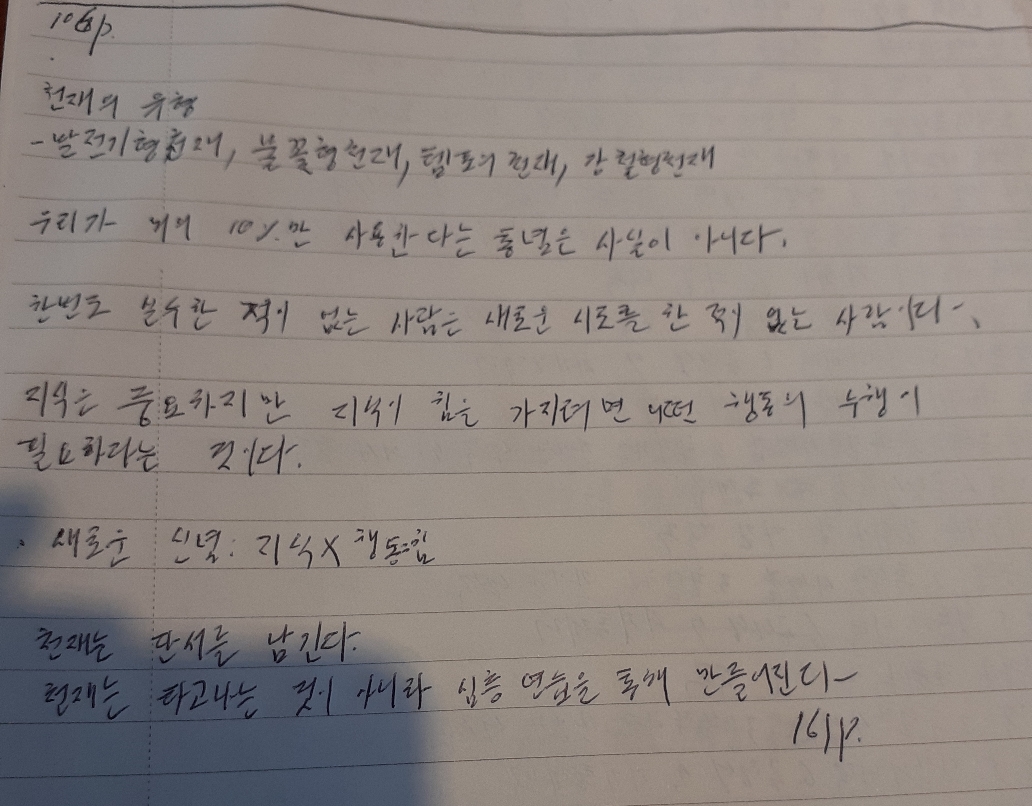 천재의 유형
- 발전기형천재, 불꽃형천재, 템포의 천재, 강철형천재
우리가 뇌의 10%만 사용한다는 통념은 사실이 아니다.
한번도 실수한 적이 없는 사람은 새로운 시도를 한 적이 없는 사람이다.
지식은 중요하지만 지식이 힘을 가지려면 어떤 행동의 수행이
필요하다는 것이다.
· 새로운 신념: 지식X행동=힘
천재는 단서를 남긴다.
천재는 타고나는 것이 아니라 심층 연습을 통해 만들어진다
161p.